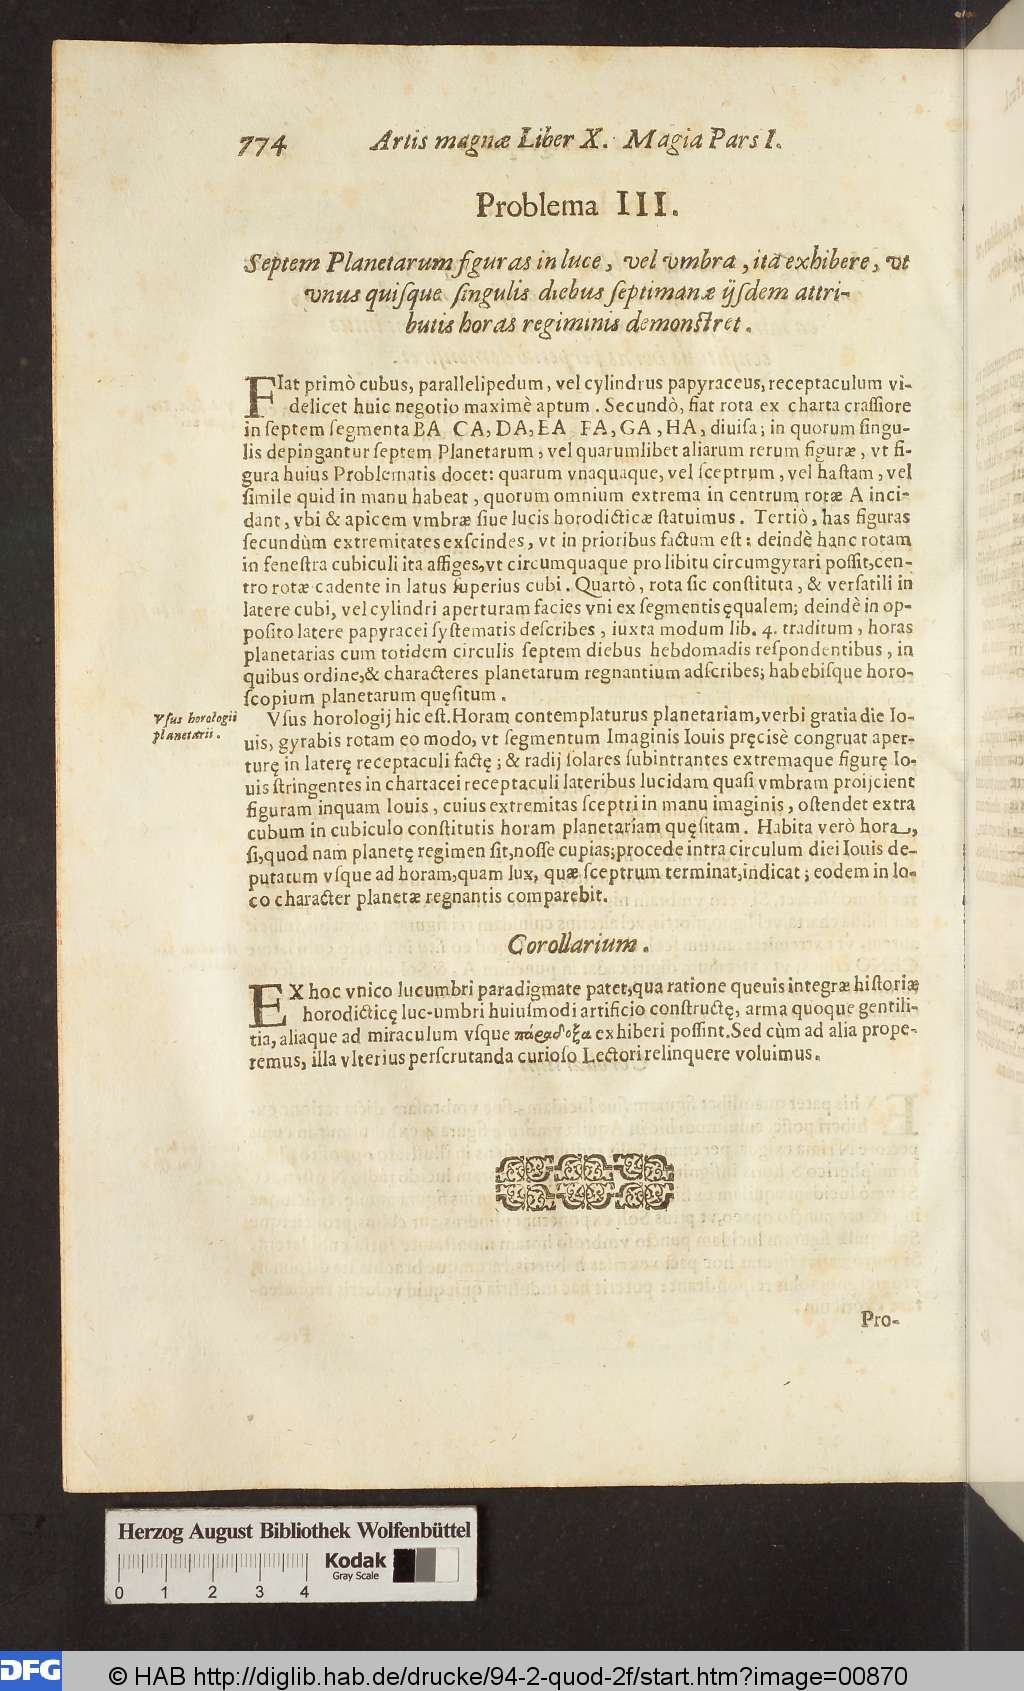 774 Artis magnæ Liber X. Magia Pars I.
Problema III.
Septem Planetarum figuras in luce, vel vmbra, ita exhibere, vt
vnus quiſque ſingulis diebus ſeptimanæ ijſdem attri-
butis horas regiminis demonſtret.
FIat primò cubus, parallelipedum, vel cylindrus papyraceus, receptaculum vi-
delicet huic negotio maximè aptum. Secundò, fiat rota ex charta craſſiore
in ſeptem ſegmenta BA CA, DA, EA FA, GA, HA, diuiſa; in quorum ſingu-
lis depingantur ſeptem Planetarum, vel quarumlibet aliarum rerum figuræ, vt fi-
gura huius Problematis docet: quarum vnaquaque, vel ſceptrum, vel haſtam, vel
ſimile quid in manu habeat, quorum omnium extrema in centrum rotæ A inci-
dant, vbi & apicem vmbræ ſiue lucis horodicticæ ſtatuimus. Tertiò, has figuras
ſecundùm extremitates exſcindes, vt in prioribus factum eſt: deindè hanc rotam
in feneſtra cubiculi ita affiges, vt circumquaque pro libitu circumgyrari poſſit, cen-
tro rotæ cadente in latus ſuperius cubi. Quartò, rota ſic conſtituta, & verſatili in
latere cubi, vel cylindri aperturam facies vni ex ſegmentis ęqualem; deindè in op-
poſito latere papyracei ſyſtematis deſcribes, iuxta modum lib. 4. traditum, horas
planetarias cum totidem circulis ſeptem diebus hebdomadis reſpondentibus, in
quibus ordine, & characteres planetarum regnantium adſcribes; habebiſque horo-
ſcopium planetarum quęſitum.
Vſus horologii
planetarii.
Vſus horologij hic eſt. Horam contemplaturus planetariam, verbi gratia die Io-
uis, gyrabis rotam eo modo, vt ſegmentum Imaginis Iouis pręcisè congruat aper-
turę in laterę receptaculi factę; & radij ſolares ſubintrantes extremaque figurę Io-
uis ſtringentes in chartacei receptaculi lateribus lucidam quaſi vmbram proijcient
figuram inquam Iouis, cuius extremitas ſceptri in manu imaginis, oſtendet extra
cubum in cubiculo conſtitutis horam planetariam quęſitam. Habita verò hora,
ſi, quod nam planetę regimen ſit, noſſe cupias; procede intra circulum diei Iouis de-
putatum vſque ad horam, quam lux, quæ ſceptrum terminat, indicat; eodem in lo-
co character planetæ regnantis comparebit.
Corollarium.
EX hoc vnico lucumbri paradigmate patet, qua ratione queuis integræ hiſtoriæ
horodicticę luc-umbri huiuſmodi artificio conſtructę, arma quoque gentili-
tia, aliaque ad miraculum vſque παράδοξα exhiberi poſſint. Sed cùm ad alia prope-
remus, illa vlterius perſcrutanda curioſo Lectori relinquere voluimus.
Pro-
Herzog August Bibliothek Wolfenbüttel
Kodak
Gray Scale
0 1 2 3 4
DFG © HAB http://diglib.hab.de/drucke/94-2-quod-2f/start.htm?image=00870